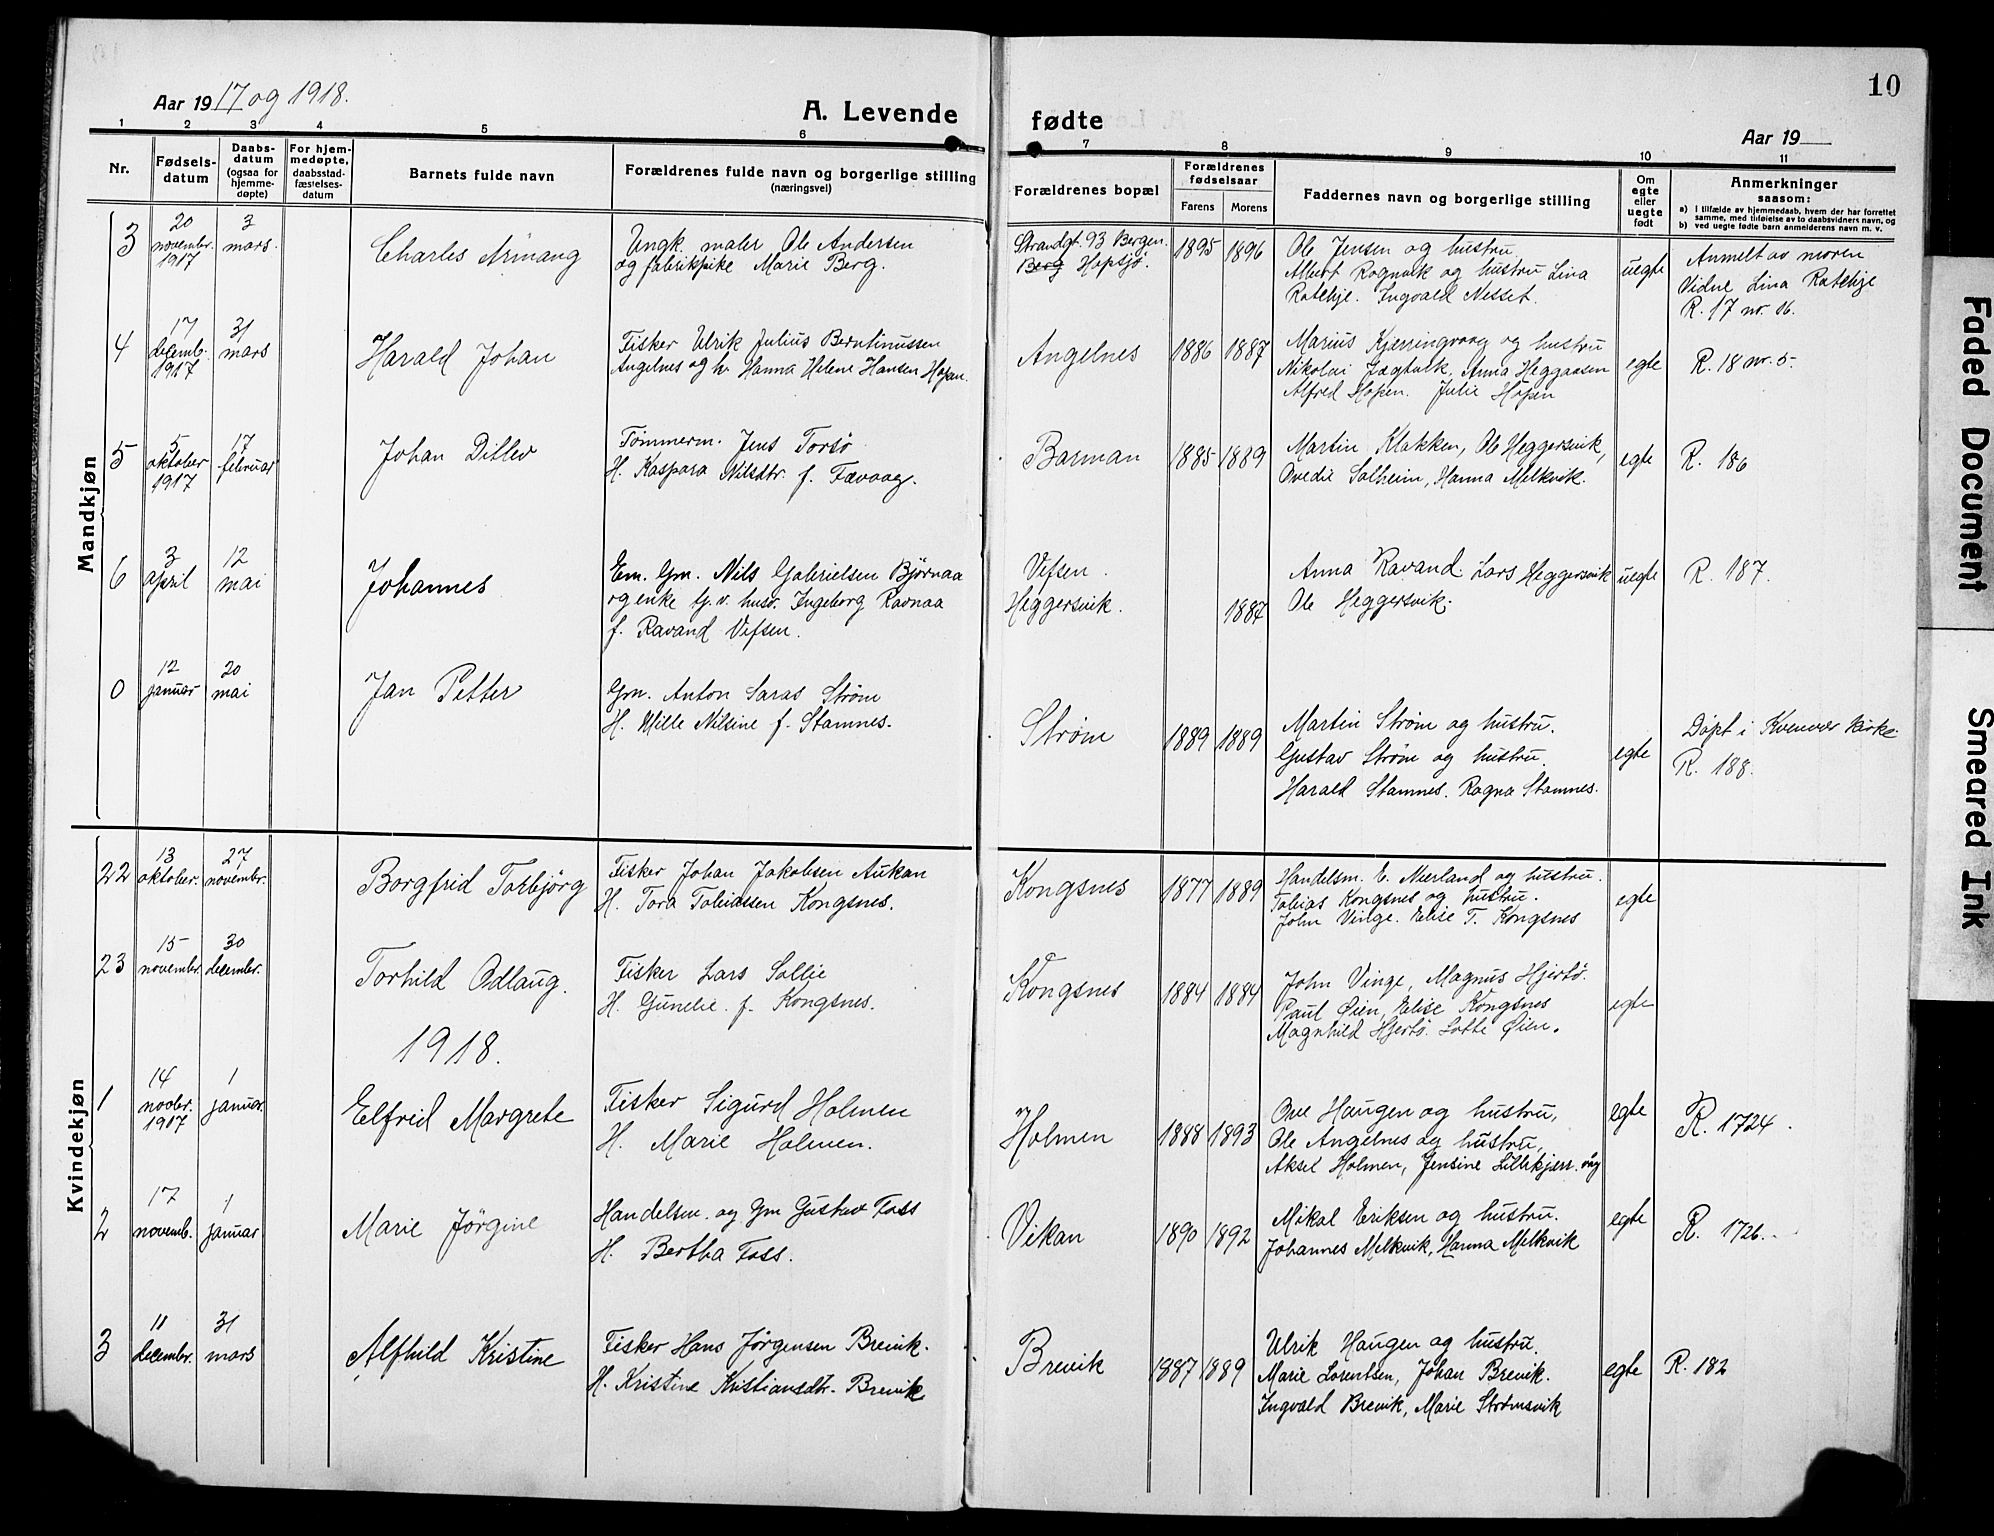 10
Aar 1917 og 1918.
A. Levende
fødte
Aar 19
1 2 3 4 5 6
7 8 9 10 11
Nr.
Fødselsdatum
Daabsdatum (ogsaa for hjemmedøpte)
For hjemmedøpte, daabsstadfæstelsesdatum
Barnets fulde navn
Forældrenes fulde navn og borgerlige stilling
(næringsvei)
Forældrenes bopæl
Forældrenes fødselsaar
Farens Morens
Faddernes navn og borgerlige stilling
Om egte eller uegte født
Anmerkninger
saasom:
a) I tilfælde av hjemmedaab, hvem der har forrettet samme, med tilføielse av to daabsvidners navn, og
b) ved uegte fødte barn anmelderens navn m. v.
Mandkjøn
3 20 november 1917 3 mars. Charles Armang
Ungk. maler Ole Andersen
og fabrikpike Marie Berg.
Strandgt. 93 Bergen.
Berg Hopsjø.
1895 1896
Ole Jensen og hustru
Albert Rognvik og hustru Lina
Ratehje. Ingvald Nesset.
uegte
Anmelt av moren
Vidne Lina Ratehje
R. 17 nr. 16.
4 17 decemb. 1917 31 mars Harald Johan
Fisker Ulrik Julius Berntinussen
Angelnes og h. Hanna Helene Hansen Hopen.
Angelnes 1886 1887
Marius Kjerringvaag og hustru
Nikolai Jægtvik, Anna Heggaasen
Alfred Hopen. Julie Hopen
egte R. 18 nr. 5.
5 5 oktober 1917 17 februar Johan Ditlev
Tømmerm. Jens Torsø
H. Kaspara Nilsdtr. f. Fævaag.
Barman 1885 1889
Martin Klakken, Ole Heggersvik,
Ovedie Solheim, Hanna Melkvik.
egte R. 186
6 3 april 12 mai Johannes
Em. Gm. Nils Gabrielsen Bjørnaa
og enke tj. v. husv. Ingeborg Ravnaa
f. Ravand Vefsen.
Vefsen.
Heggersvik.
1887
Anna Ravand. Lars Heggersvik
Ole Heggersvik.
uegte R. 187.
0 12 januar 20 mai Jan Petter
Gm. Anton Saras Strøm
H. Mille Nilsine f. Stamnes.
Strøm 1889 1889
Martin Strøm og hustru.
Gustav Strøm og hustru.
Harald Stamnes. Ragna Stamnes.
egte
Døpt i Kvenvær kirke.
R. 188.
Kvindekjøn
22 13 oktober. 27 novembr. Borgfrid Torbjörg
Fisker Johan Jakobsen Aukan
H. Tora Tobiassen Kongsnes.
Kongsnes 1877 1889
Handelsm. E. Nerland og hustru.
Tobias Kongsnes og hustru.
John Vinge. Elise T. Kongsnes
egte
23 15 novembr. 30 decembr. Torhild Odlaug.
Fisker Lars Sollie
H. Gunelie f. Kongsnes.
Kongsnes 1884 1884
John Vinge, Magnus Hjertø.
Paul Øien, Elise Kongsnes
Magnhild Hjertø. Lotte Øien.
egte
1918.
1 14 novbr. 1917 1 januar. Elfrid Margrete
Fisker Sigurd Holmen
H. Marie Holmen.
Holmen 1888 1893
Ove Haugen og hustru,
Ole Angelnes og hustru,
Aksel Holmen, Jensine Lillekjerr.våg
egte R. 1724.
2 17 novemb. 1 januar Marie Jörgine
Handelsm. og Gm Gustav Foss
H. Bertha Foss.
Vikan 1890 1892
Mikal Eriksen og hustru.
Johannes Melkvik, Hanna Melkvik
egte R. 1726.
3 11 decembr. 31 mars Alfhild Kristine
Fisker Hans Jørgensen Breivik.
H. Kristine Kristiansdtr. Breivik
Breivik 1887 1889
Ulrik Haugen og hustru.
Marie Lorentsen, Johan Breivik.
Ingvald Breivik, Marie Strømsvik
egte R. 182
Faded Document
Smeared Ink